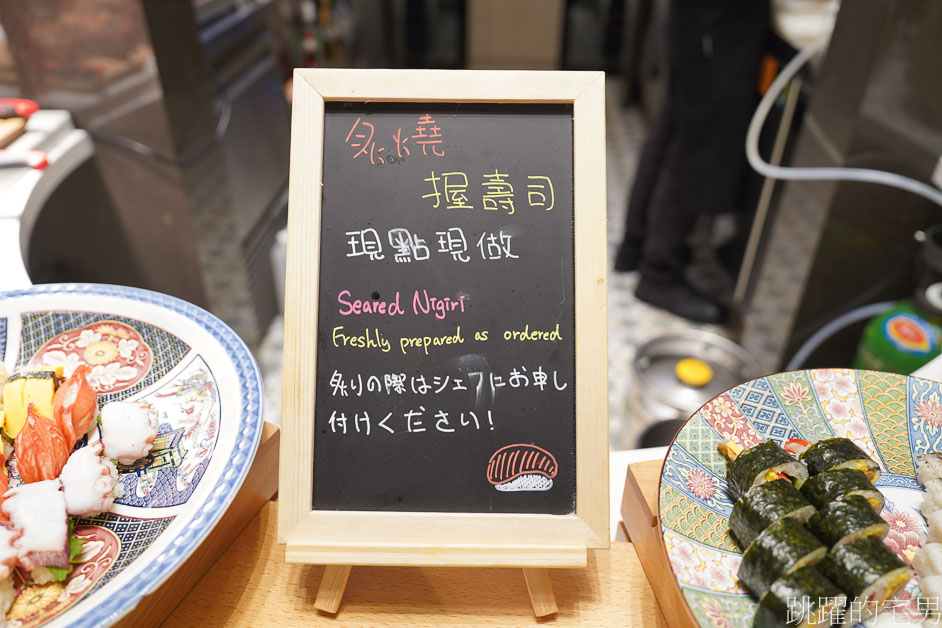 炙燒
握壽司
現點現做
Seared Nigiri
Freshly prepared as ordered
炙りの際はシェフにお申し
付けください!
跳躍的宅男